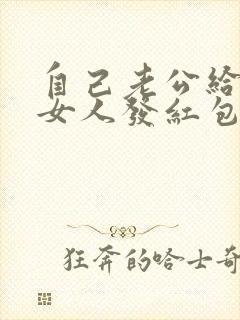 自己老公给
女人發紅包
狂奔的哈士奇